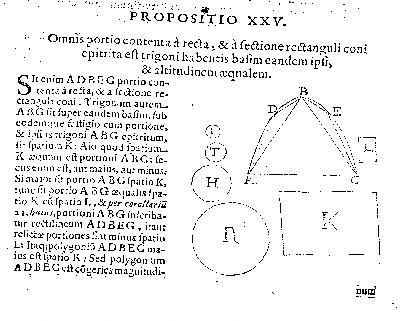 PROPOSITIO XXV.
Omnis portio contenta à recta, & à sectione rectanguli coni
epitrita est trigoni habentis basim eandem ipsi,
& altitudinem æqualem.
Sit enim ADBEG portio con-
tenta à recta, & à sectione re-
ctanguli coni. Trigonum autem
ABG sit super eandem basim, sub
eodemque fastigio cum portione,
& ipsius trigoni ABG epitritum,
sit spatium K: Aio quod spatium
K æquum est portioni ABG: se-
cus enim est, aut maius, aut minus.
Si maior sit portio ABG spatio K,
portio ABG æqualis spa-
tio K cū spatio L, & per corollariū
portioni ABG inscriba-
tur rectilineum ADBEG,
relictæ portiones sint minus spatio
L: Itaq; polygoniū ADBEG ma-
ius est spatio K; Sed polygonum
ADBEG est cōgeries magnitudi-
B
D
E
I
T
H
A
C
L
Π
K
num